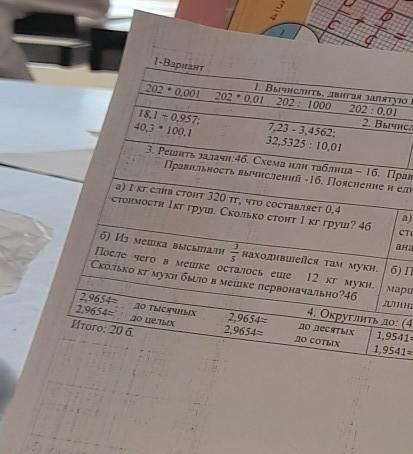 1-Вариант
1. Вычислить, двигая запятую
202 * 0,001 202 * 0,01 202 : 1000 202 : 0,01
2. Вычисл
18,1 + 0,957; 7,23 - 3,4562;
40,3 * 100,1 32,5325 : 10,01
3. Решить задачи:4б. Схема или таблица – 1б. Прав
Правильность вычислений -1б. Пояснение и ед
а) 1 кг слив стоит 320 тг, что составляет 0,4
стоимости 1кг груш. Сколько стоит 1 кг груш? 4б
а)
ст
ана
б) Из мешка высыпали 3/5 находившейся там муки.
После чего в мешке осталось еще 12 кг муки.
Сколько кг муки было в мешке первоначально?4б
б) П
марш
длин
4. Округлить до: (4
2,9654≈ до тысячных 2,9654≈ до десятых 1,9541≈
2,9654≈ до целых 2,9654≈ до сотых 1,9541≈
Итого: 20 б.